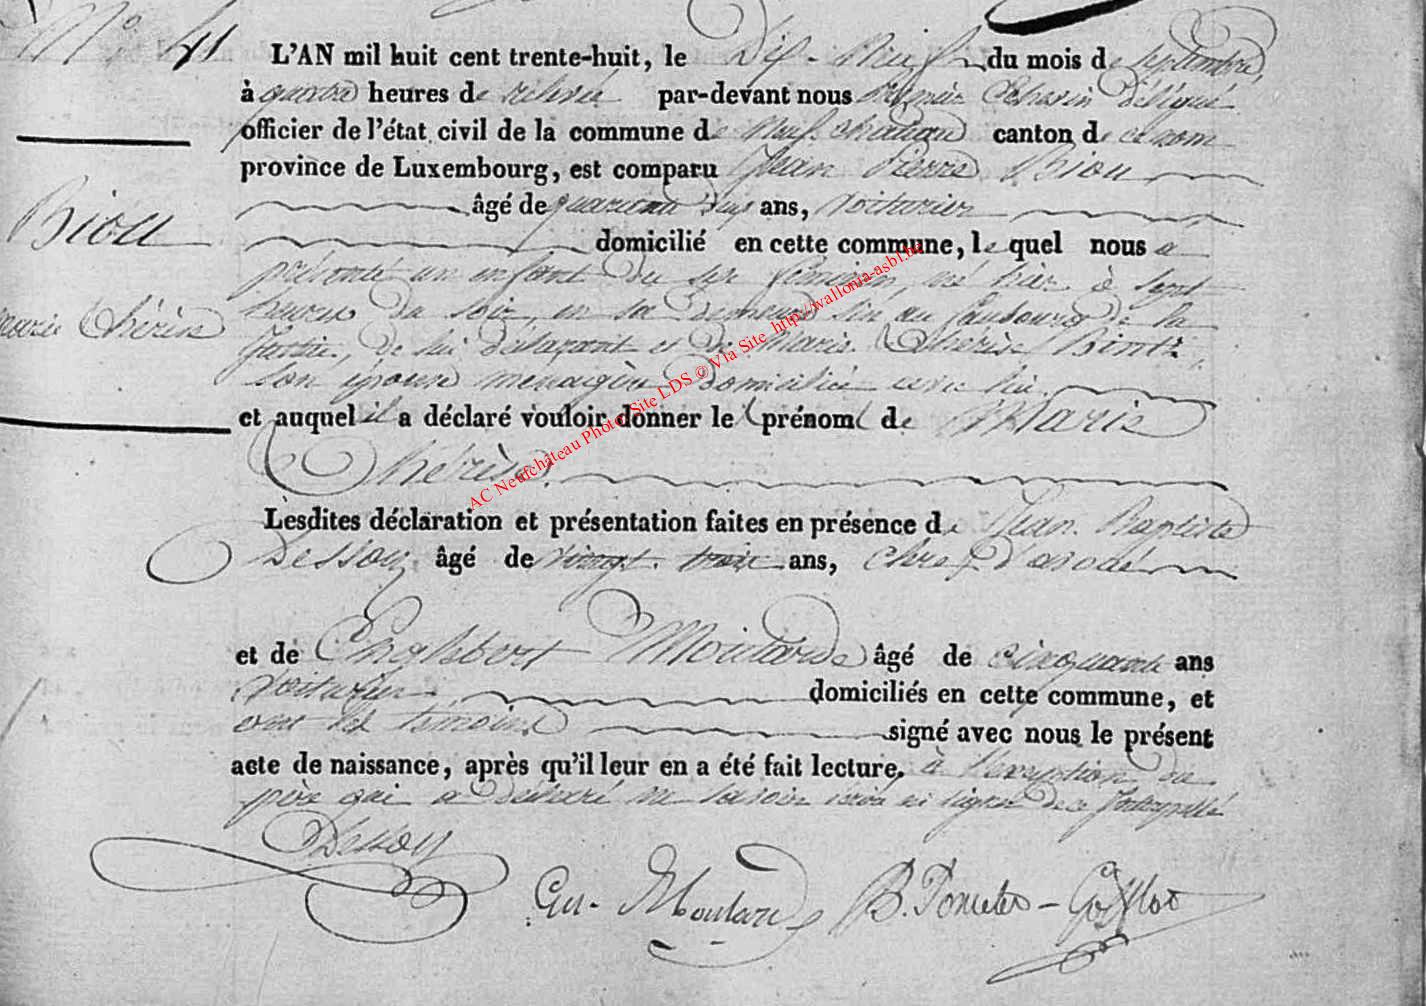 N° 41
L'AN mil huit cent trente-huit, le Dix-Neuf du mois de septembre,
à quatre heures de relevée par-devant nous Premier Echevin délégué
officier de l'état civil de la commune de Neufchateau canton de ce nom
province de Luxembourg, est comparu Jean Pierre Biou
Biou
âgé de quarante ans, voiturier
domicilié en cette commune, le quel nous a
présenté un enfant du sexe féminin, né hier à sept
heures du soir en sa demeure au faubourg de la
Marie Thérèse
de lui déclarant et de Marie Thérèse
son épouse ménagère domiciliée avec lui.
et auquel il a déclaré vouloir donner le prénom de Marie
Thérèse.
Lesdites déclaration et présentation faites en présence de Jean Baptiste
Dessoy âgé de vingt trois ans,
et de Englebert Moutarde âgé de cinquante ans
voiturier domiciliés en cette commune, et
ont les témoins signé avec nous le présent
acte de naissance, après qu'il leur en a été fait lecture, à l'exception du
père qui a déclaré ne savoir écrire ni signer de ce interpellé
Dessoy
En. Moutarde B. Poncelet - Gofflot
AC Neufchâteau Photo Site LDS © Via Site http://wallonia-asbl.be